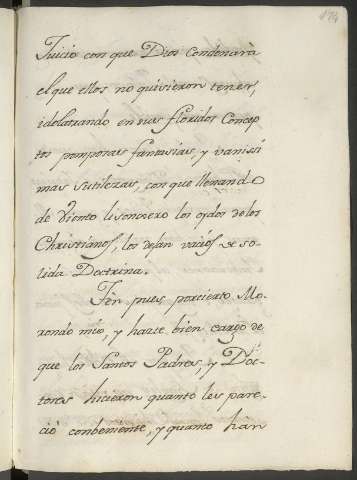 174
Juicio con que Dios Condenarà
el que ellos no quisieron tener,
idolatrando en sus floridos Concep
tos pomposas fantasias, y vanissi
mas sutilezas, con que llenando
de viento lisonxero los oydos de los
Christianos, los dejan vacios de so-
lida Doctrina.
Ten pues por cierto Mo-
rondo mio, y hazte bien cargo de
que los Santos Padres, y Doc-
tores hicieron quanto les pare-
ciò conbeniente, y quanto hàn